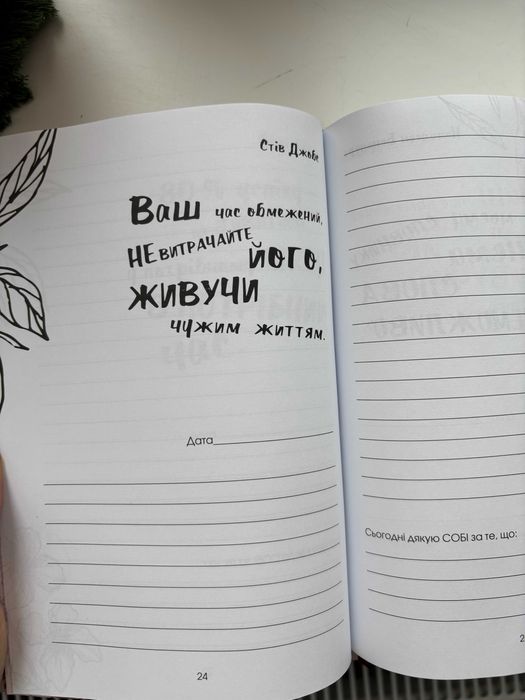 Стів Джобс
Ваш час обмежений,
НЕ витрачайте його,
живучи
чужим життям.
Дата
24
Сьогодні дякую СОБІ за те, що: